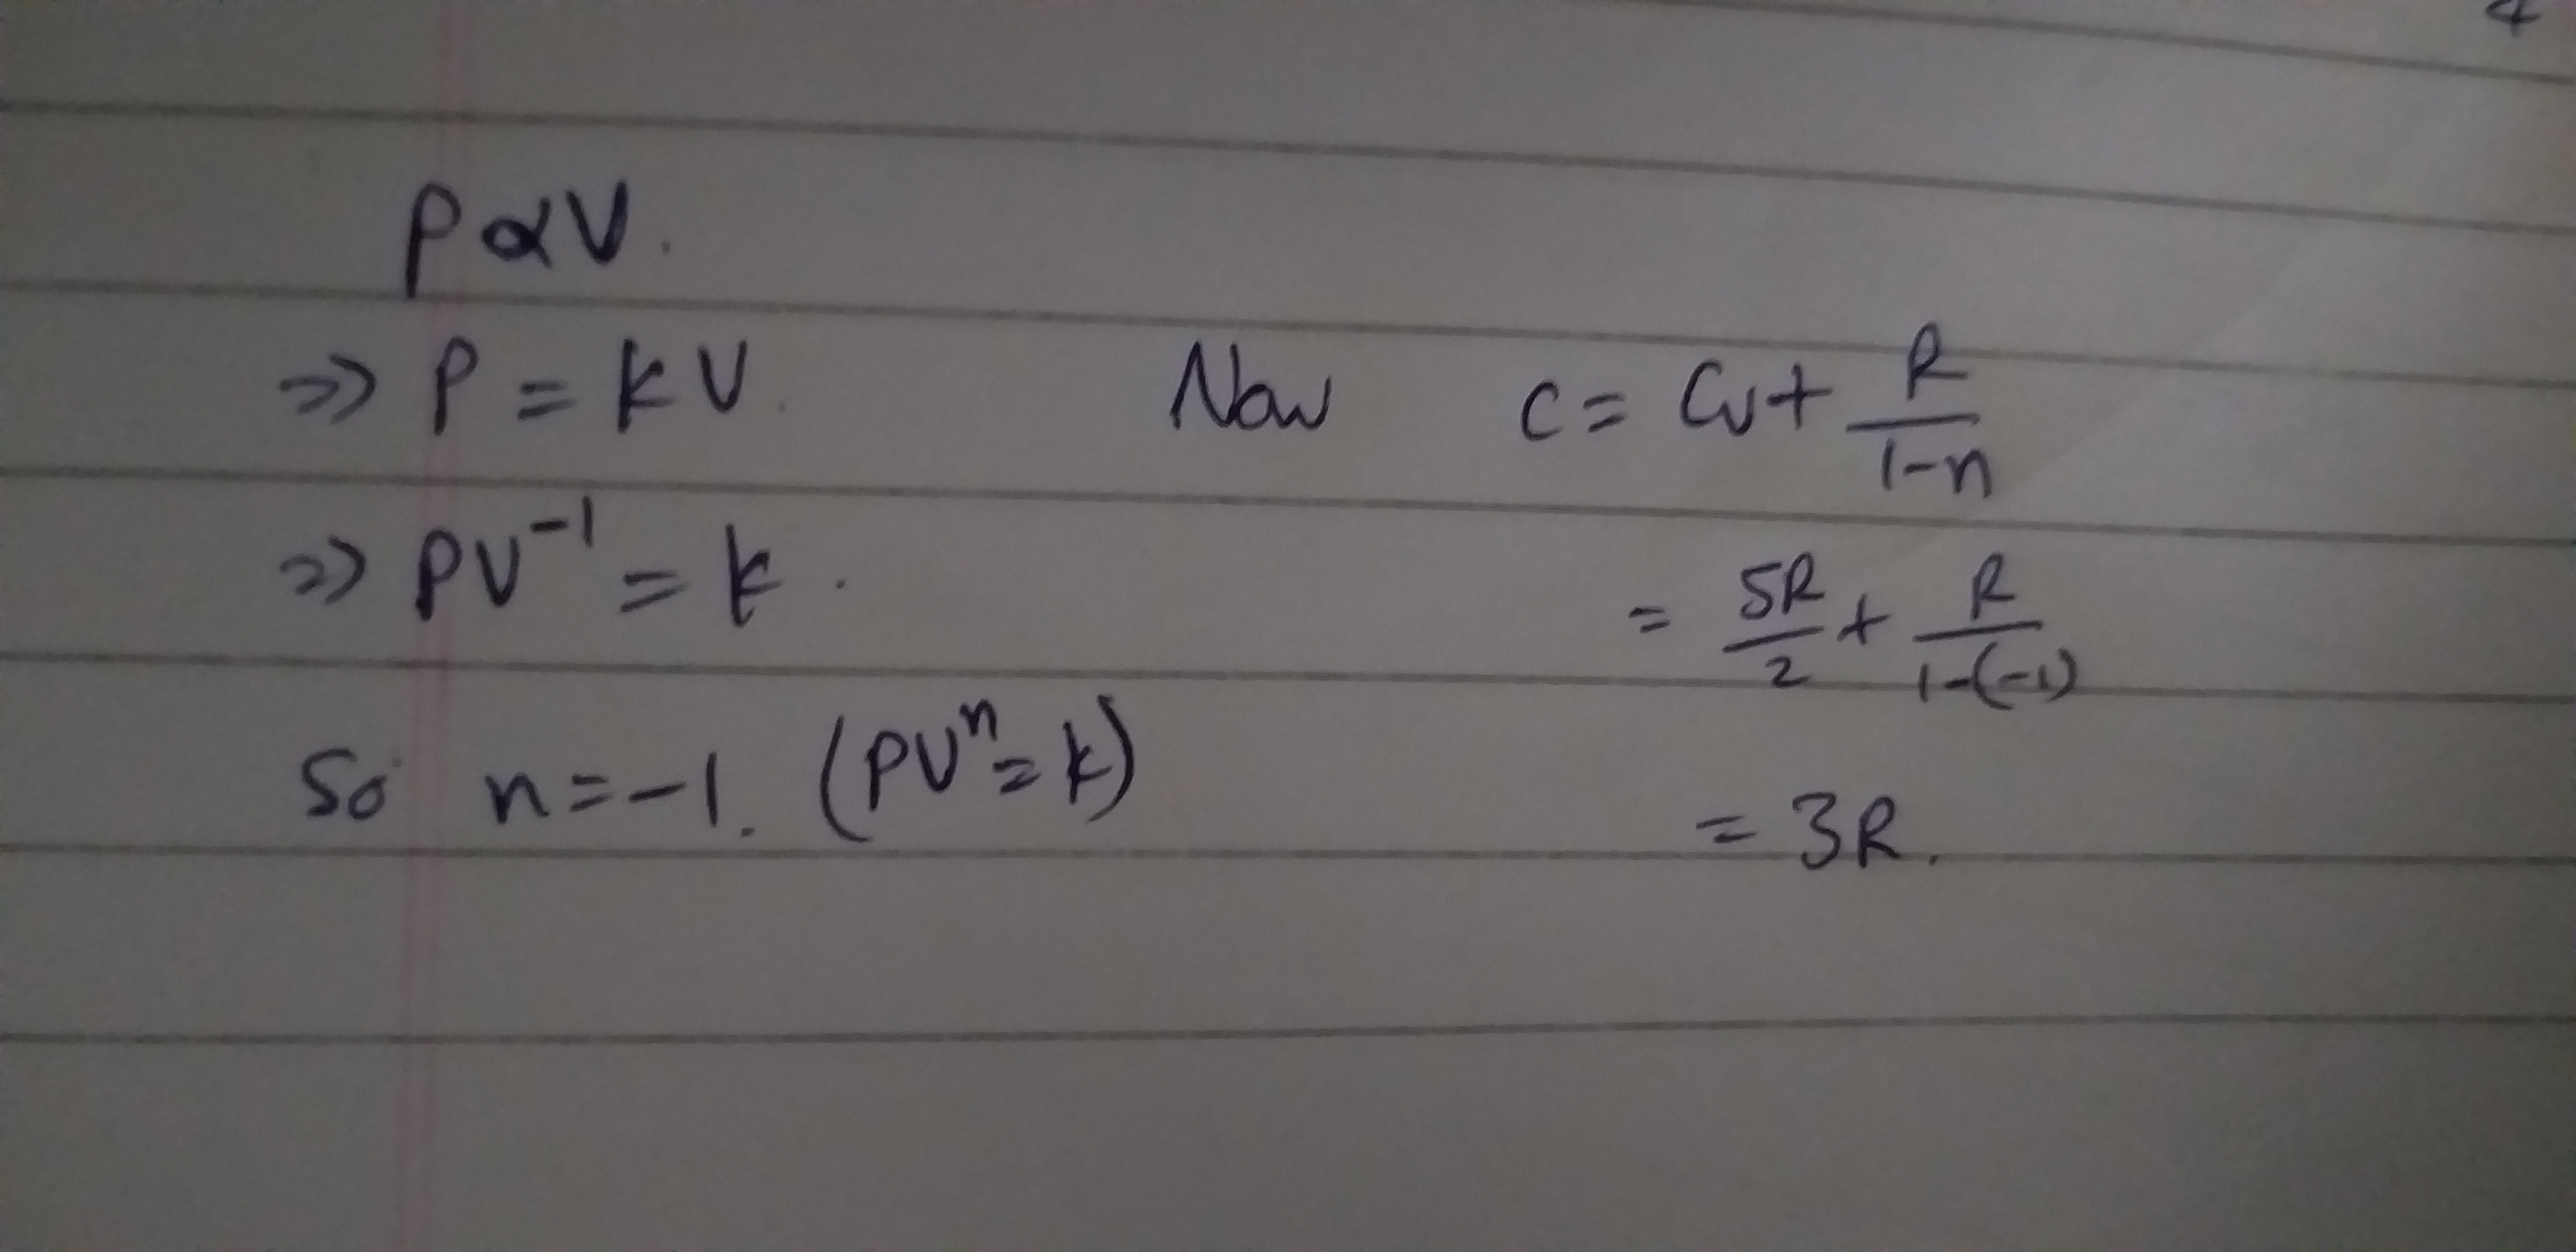 P ∝ V.
⇒ P = kV.
⇒ PV⁻¹ = k.
So n = -1. (PVⁿ = k)
Now C = Cv + R/(1-n)
= 5R/2 + R/(1-(-1))
= 3R.